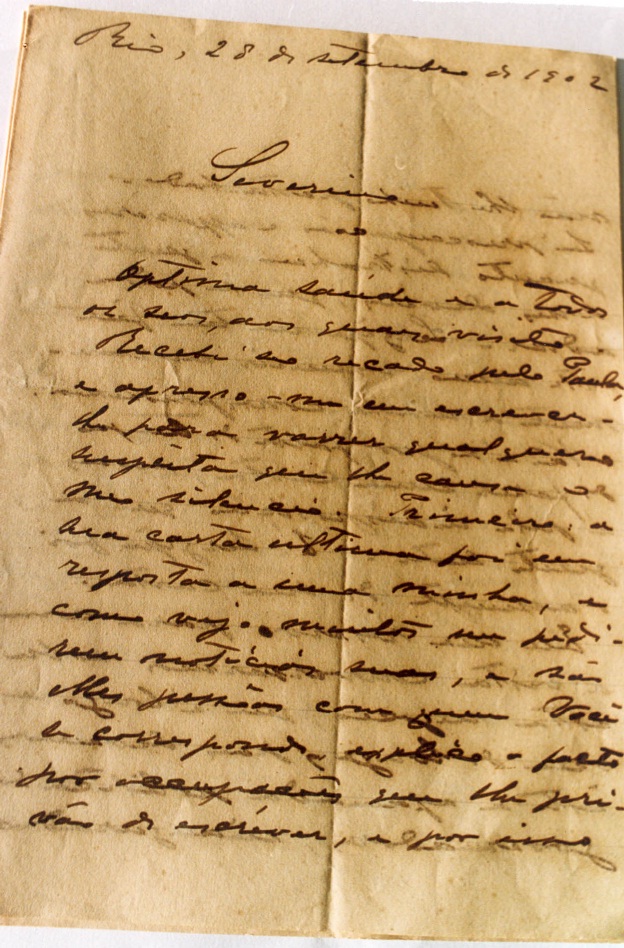 Rio, 28 de setembro de 1902
Severiano
Optima saúde e a todos
os seos, aos quaes visito.
Recebi seo recado pelo Paula,
e apresso-me em escrever-
lhe para varrer qualquer
suspeita que lhe cause o
meo silencio. Primeiro: a
sua carta ultima foi em
resposta a uma minha, e
como vejo muitos me pedi-
rem noticias suas, e são
elles pessôas com quem Você
se corresponde, explico o facto
por occupações que lhe pri-
vão de escrever, e por isso